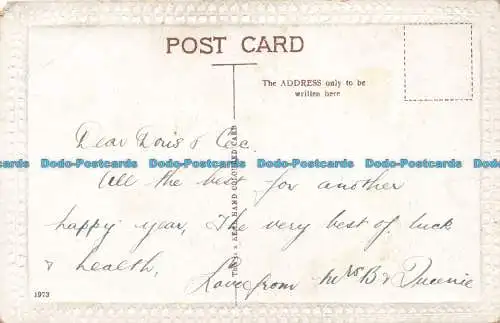 POST CARD
The ADDRESS only to be
written here
Dear Doris &
All the best for another
happy year, The very best of luck
& health,
Love from Mrs B & Queenie
HAND COLOURED CARD
1973
Dodo-Postcards Dodo-Postcards Dodo-Postcards Dodo-Postcards
Dodo-Postcards Dodo-Postcards Dodo-Postcards Dodo-Postcards